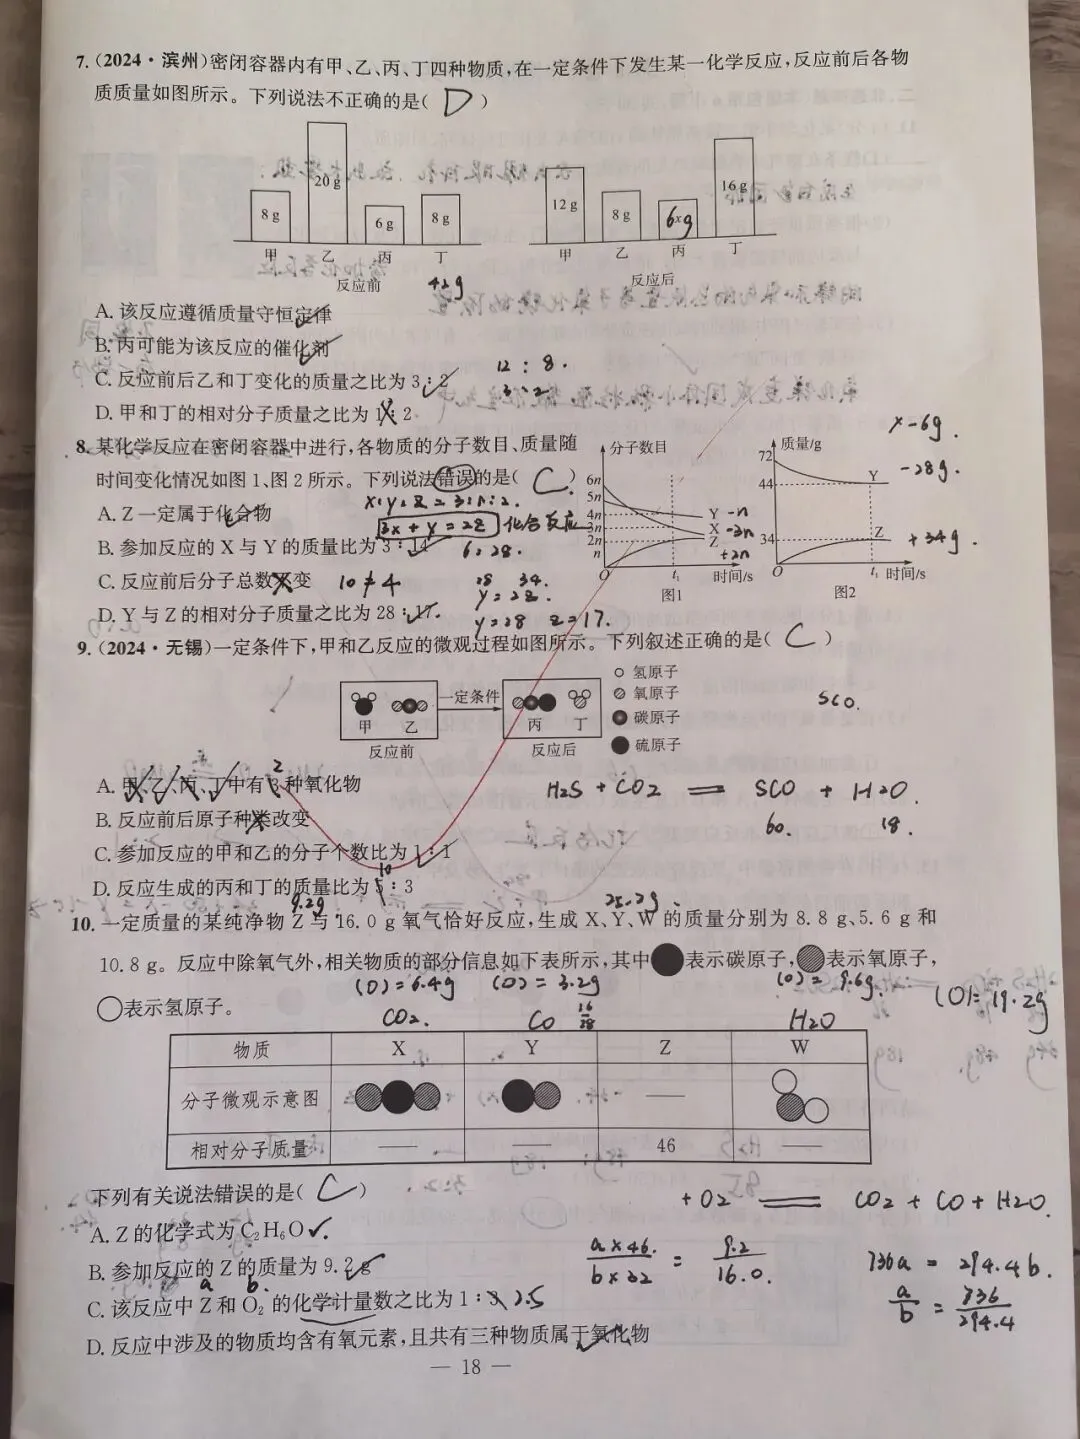 7.(2024·滨州)密闭容器内有甲、乙、丙、丁四种物质,在一定条件下发生某一化学反应,反应前后各物
质质量如图所示。下列说法不正确的是( D )
8 g 20 g 6 g 8 g 12 g 8 g 6 x g 16 g
甲 乙 丙 丁 甲 乙 丙 丁
反应前 42g 反应后
A. 该反应遵循质量守恒定律
B. 丙可能为该反应的催化剂
12 : 8.
C. 反应前后乙和丁变化的质量之比为 3 : 2
3 : 2
D. 甲和丁的相对分子质量之比为 1 : 2
8. 某化学反应在密闭容器中进行,各物质的分子数目、质量随
时间变化情况如图 1、图 2 所示。下列说法错误的是( C )
X : Y : Z = 3 : 1 : 2.
A. Z 一定属于化合物
3X + Y = 2Z 化合反应
B. 参加反应的 X 与 Y 的质量比为 3 : 14
6 : 28.
C. 反应前后分子总数不变 10 ≠ 4
28 34.
Y = 2Z.
D. Y 与 Z 的相对分子质量之比为 28 : 17.
Y=28 Z=17.
分子数目
6n
5n
4n
3n
2n
n
O
t₁
时间/s
Y -n
X -3n
Z +2n
图1
质量/g
72
44
34
O
t₁
时间/s
Y
Z
图2
X -6g.
-28g.
+34g.
9.(2024·无锡)一定条件下,甲和乙反应的微观过程如图所示。下列叙述正确的是( C )
甲 乙 一定条件 丙 丁
反应前 反应后
氢原子
氧原子
碳原子
硫原子
SCO.
A. 甲、乙、丙、丁中有 3 种氧化物
2
H₂S + CO₂ = SCO + H₂O.
60. 18.
B. 反应前后原子种类改变
C. 参加反应的甲和乙的分子个数比为 1 : 1
10
D. 反应生成的丙和丁的质量比为 5 : 3
9.2g 25.2g.
10. 一定质量的某纯净物 Z 与 16.0 g 氧气恰好反应,生成 X、Y、W 的质量分别为 8.8 g、5.6 g 和
10.8 g。反应中除氧气外,相关物质的部分信息如下表所示,其中 表示碳原子, 表示氧原子,
表示氢原子。
(O)=6.4g (O)=3.2g (O)=9.6g. (O)=19.2g
CO₂. CO 16/28 H₂O
物质 X Y Z W
分子微观示意图 —
相对分子质量 — — 46 —
下列有关说法错误的是( C )
+ O₂ = CO₂ + CO + H₂O.
A. Z 的化学式为 C₂H₆O
B. 参加反应的 Z 的质量为 9.2 g
a×46. / b×32 = 9.2 / 16.0.
736a = 294.4b.
a / b = 736 / 294.4
a b.
C. 该反应中 Z 和 O₂ 的化学计量数之比为 1 : 3 2.5
D. 反应中涉及的物质均含有氧元素,且共有三种物质属于氧化物
— 18 —